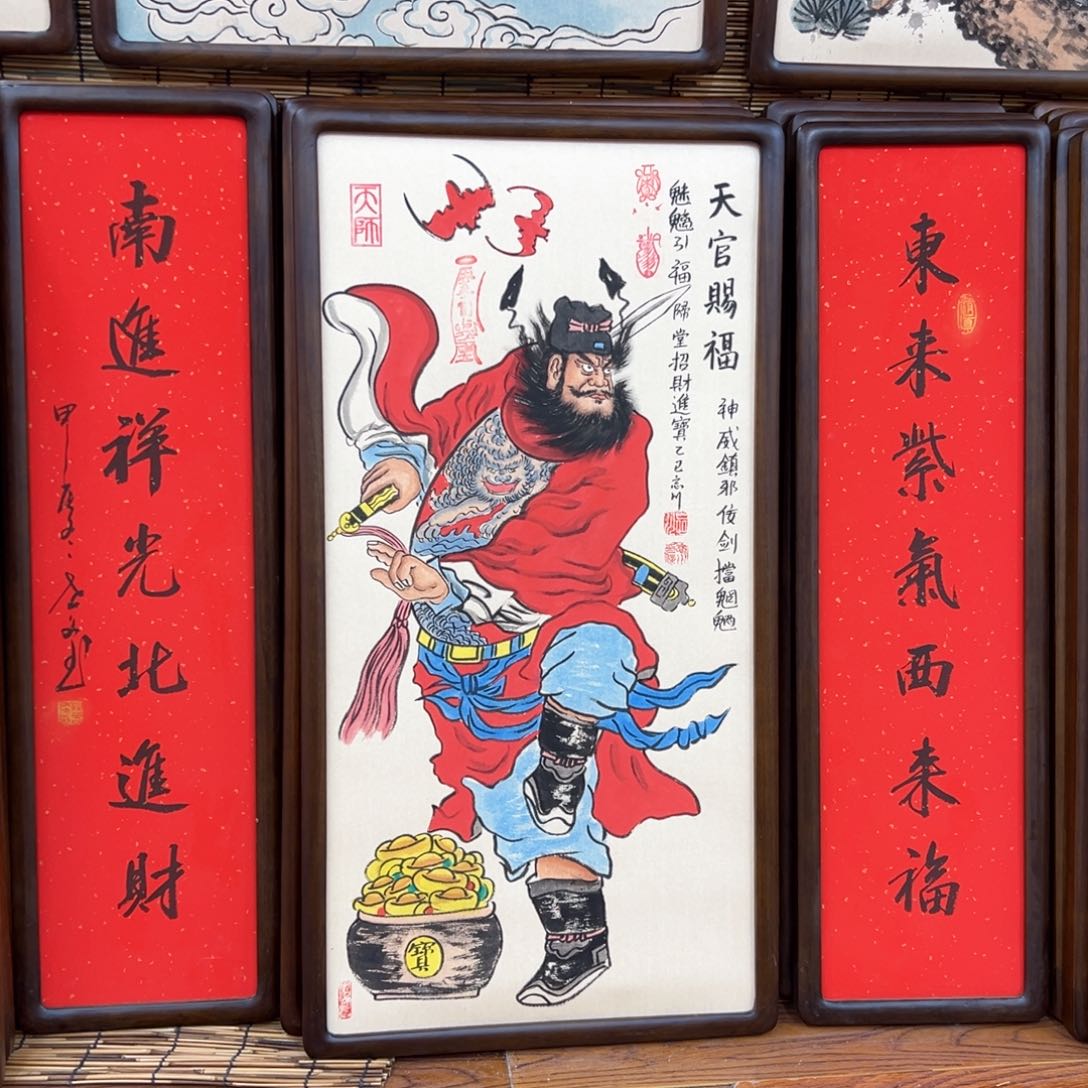 東来紫氣西来福
天官賜福
神威鎮邪佞剑擋
引福歸堂招財進寶乙巳
天師
寶
南進祥光北進財
甲辰